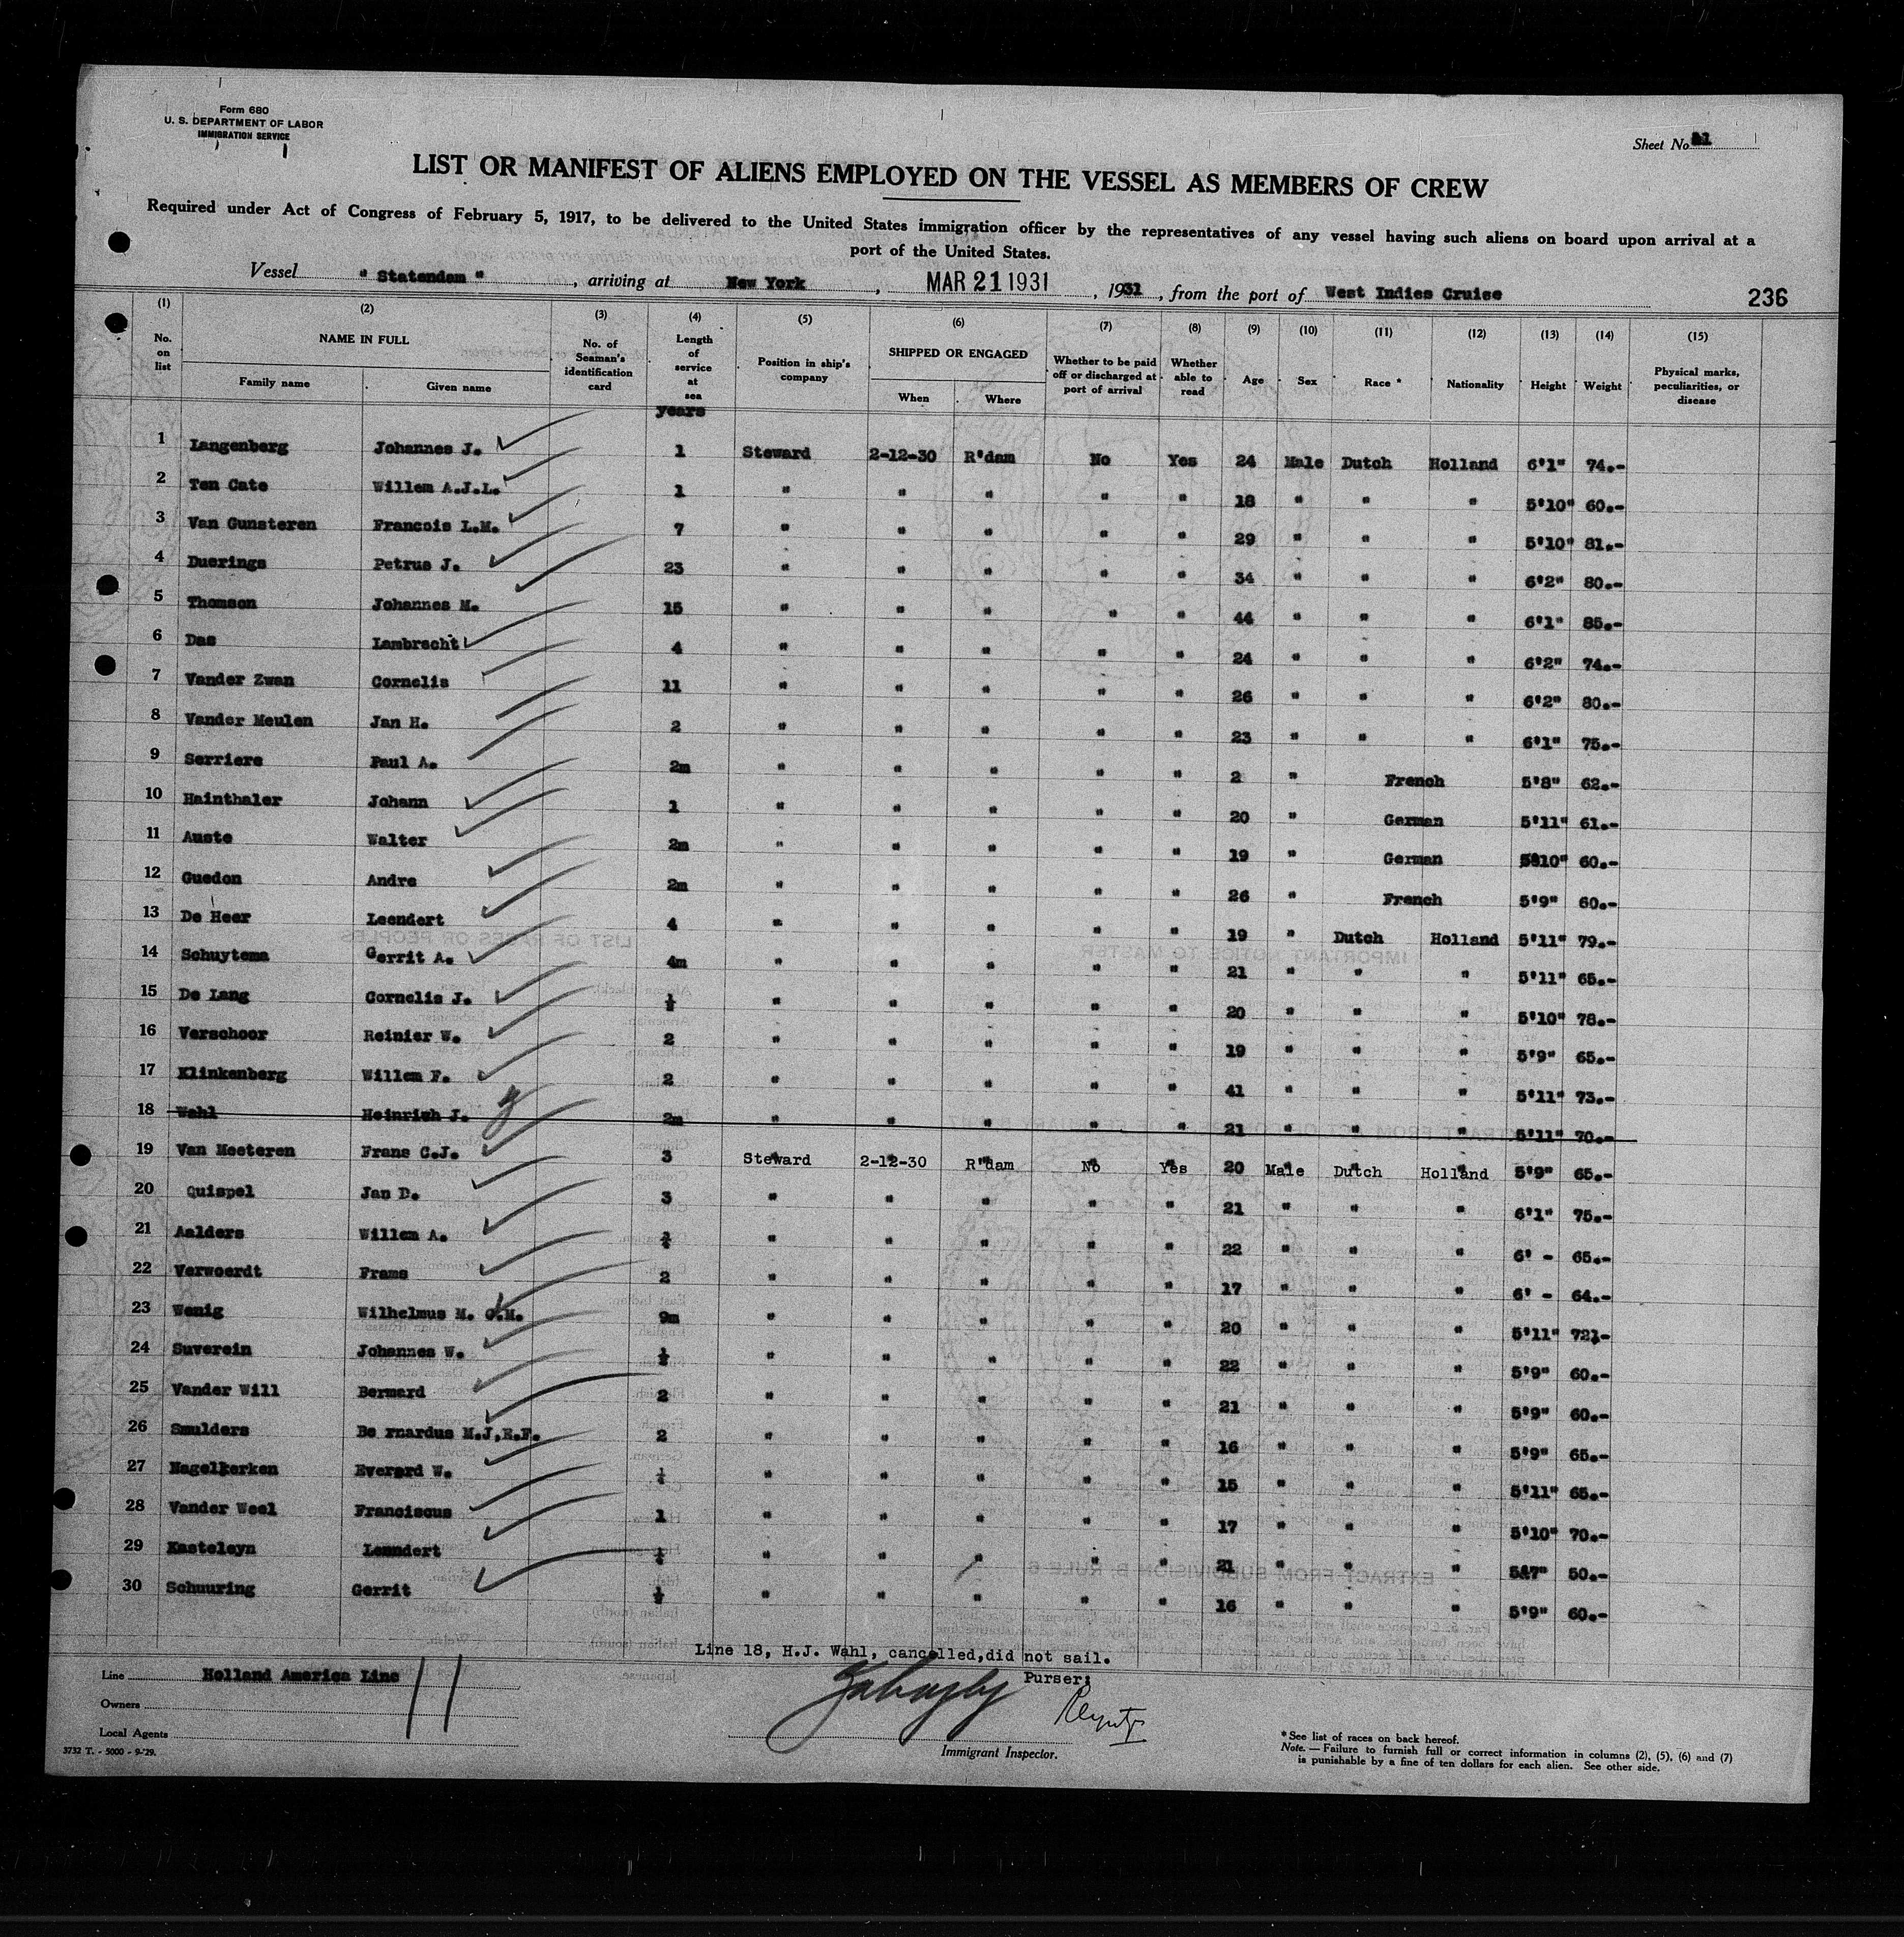 Form 680
U. S. DEPARTMENT OF LABOR
IMMIGRATION SERVICE
Sheet No.
LIST OR MANIFEST OF ALIENS EMPLOYED ON THE VESSEL AS MEMBERS OF CREW
Required under Act of Congress of February 5, 1917, to be delivered to the United States immigration officer by the representatives of any vessel having such aliens on board upon arrival at a
port of the United States.
Vessel " Statendam ", arriving at New York, MAR 21 1931, 1931, from the port of West Indies Cruise 236
(1) (2) (3) (4) (5) (6) (7) (8) (9) (10) (11) (12) (13) (14) (15)
No. on list NAME IN FULL Family name Given name No. of Seaman's identification card Length of service at sea Position in ship's company SHIPPED OR ENGAGED When Where Whether to be paid off or discharged at port of arrival Whether able to read Age Sex Race * Nationality Height Weight Physical marks, peculiarities, or disease
years
1 Langenberg Johannes J. 1 Steward 2-12-30 R'dam No Yes 24 Male Dutch Holland 6'1" 74.-
2 Ten Cate Willem A.J.L. 1 " " " " " 18 " " " 5'10" 60.-
3 Van Gunsteren Francois L.M. 7 " " " " " 29 " " " 5'10" 81.-
4 Duerings Petrus J. 23 " " " " " 34 " " " 6'2" 80.-
5 Thomson Johannes M. 15 " " " " " 44 " " " 6'1" 85.-
6 Das Lambrecht 4 " " " " " 24 " " " 6'2" 74.-
7 Vander Zwan Cornelis 11 " " " " " 26 " " " 6'2" 80.-
8 Vander Meulen Jan H. 2 " " " " " 23 " " " 6'1" 75.-
9 Serriere Paul A. 2m " " " " " 2 " French 5'8" 62.-
10 Hainthaler Johann 1 " " " " " 20 " German 5'11" 61.-
11 Auste Walter 2m " " " " " 19 " German 5'10" 60.-
12 Guedon Andre 2m " " " " " 26 " French 5'9" 60.-
13 De Heer Leendert 4 " " " " " 19 " Dutch Holland 5'11" 79.-
14 Schuytema Gerrit A. 4m " " " " " 21 " " " 5'11" 65.-
15 De Lang Cornelis J. ½ " " " " " 20 " " " 5'10" 78.-
16 Verschoor Reinier W. 2 " " " " " 19 " " " 5'9" 65.-
17 Klinkenberg Willem F. 2 " " " " " 41 " " " 5'11" 73.-
18 Wahl Heinrich J. 2m " " " " " 21 " " " 5'11" 70.-
19 Van Meeteren Frans C.J. 3 Steward 2-12-30 R'dam No Yes 20 Male Dutch Holland 5'9" 65.-
20 Quispel Jan D. 3 " " " " " 21 " " " 6'1" 75.-
21 Aalders Willem A. " " " " " 22 " " " 6' - 65.-
22 Verwoerdt Frams 2 " " " " " 17 " " " 6' - 64.-
23 Wenig Wilhelmus M. C.M. 9m " " " " " 20 " " " 5'11" 72½-
24 Suverein Johannes W. ½ " " " " " 22 " " " 5'9" 60.-
25 Vander Will Bernard 2 " " " " " 21 " " " 5'9" 60.-
26 Smulders Be rnardus M.J,E.F. 2 " " " " " 16 " " " 5'9" 65.-
27 Nagelkerken Everard W. ¼ " " " " " 15 " " " 5'11" 65.-
28 Vander Weel Franciscus 1 " " " " " 17 " " " 5'10" 70.-
29 Kasteleyn Leendert " " " " " 21 " " " 5'7" 50.-
30 Schuuring Gerrit ½ " " " " " 16 " " " 5'9" 60.-
Line 18, H.J. Wahl, cancelled,did not sail.
Purser;
Line Holland America Line 11
Owners
Local Agents
3732 T. - 5000 - 9-'29.
Immigrant Inspector.
* See list of races on back hereof.
Note. — Failure to furnish full or correct information in columns (2), (5), (6) and (7)
is punishable by a fine of ten dollars for each alien. See other side.